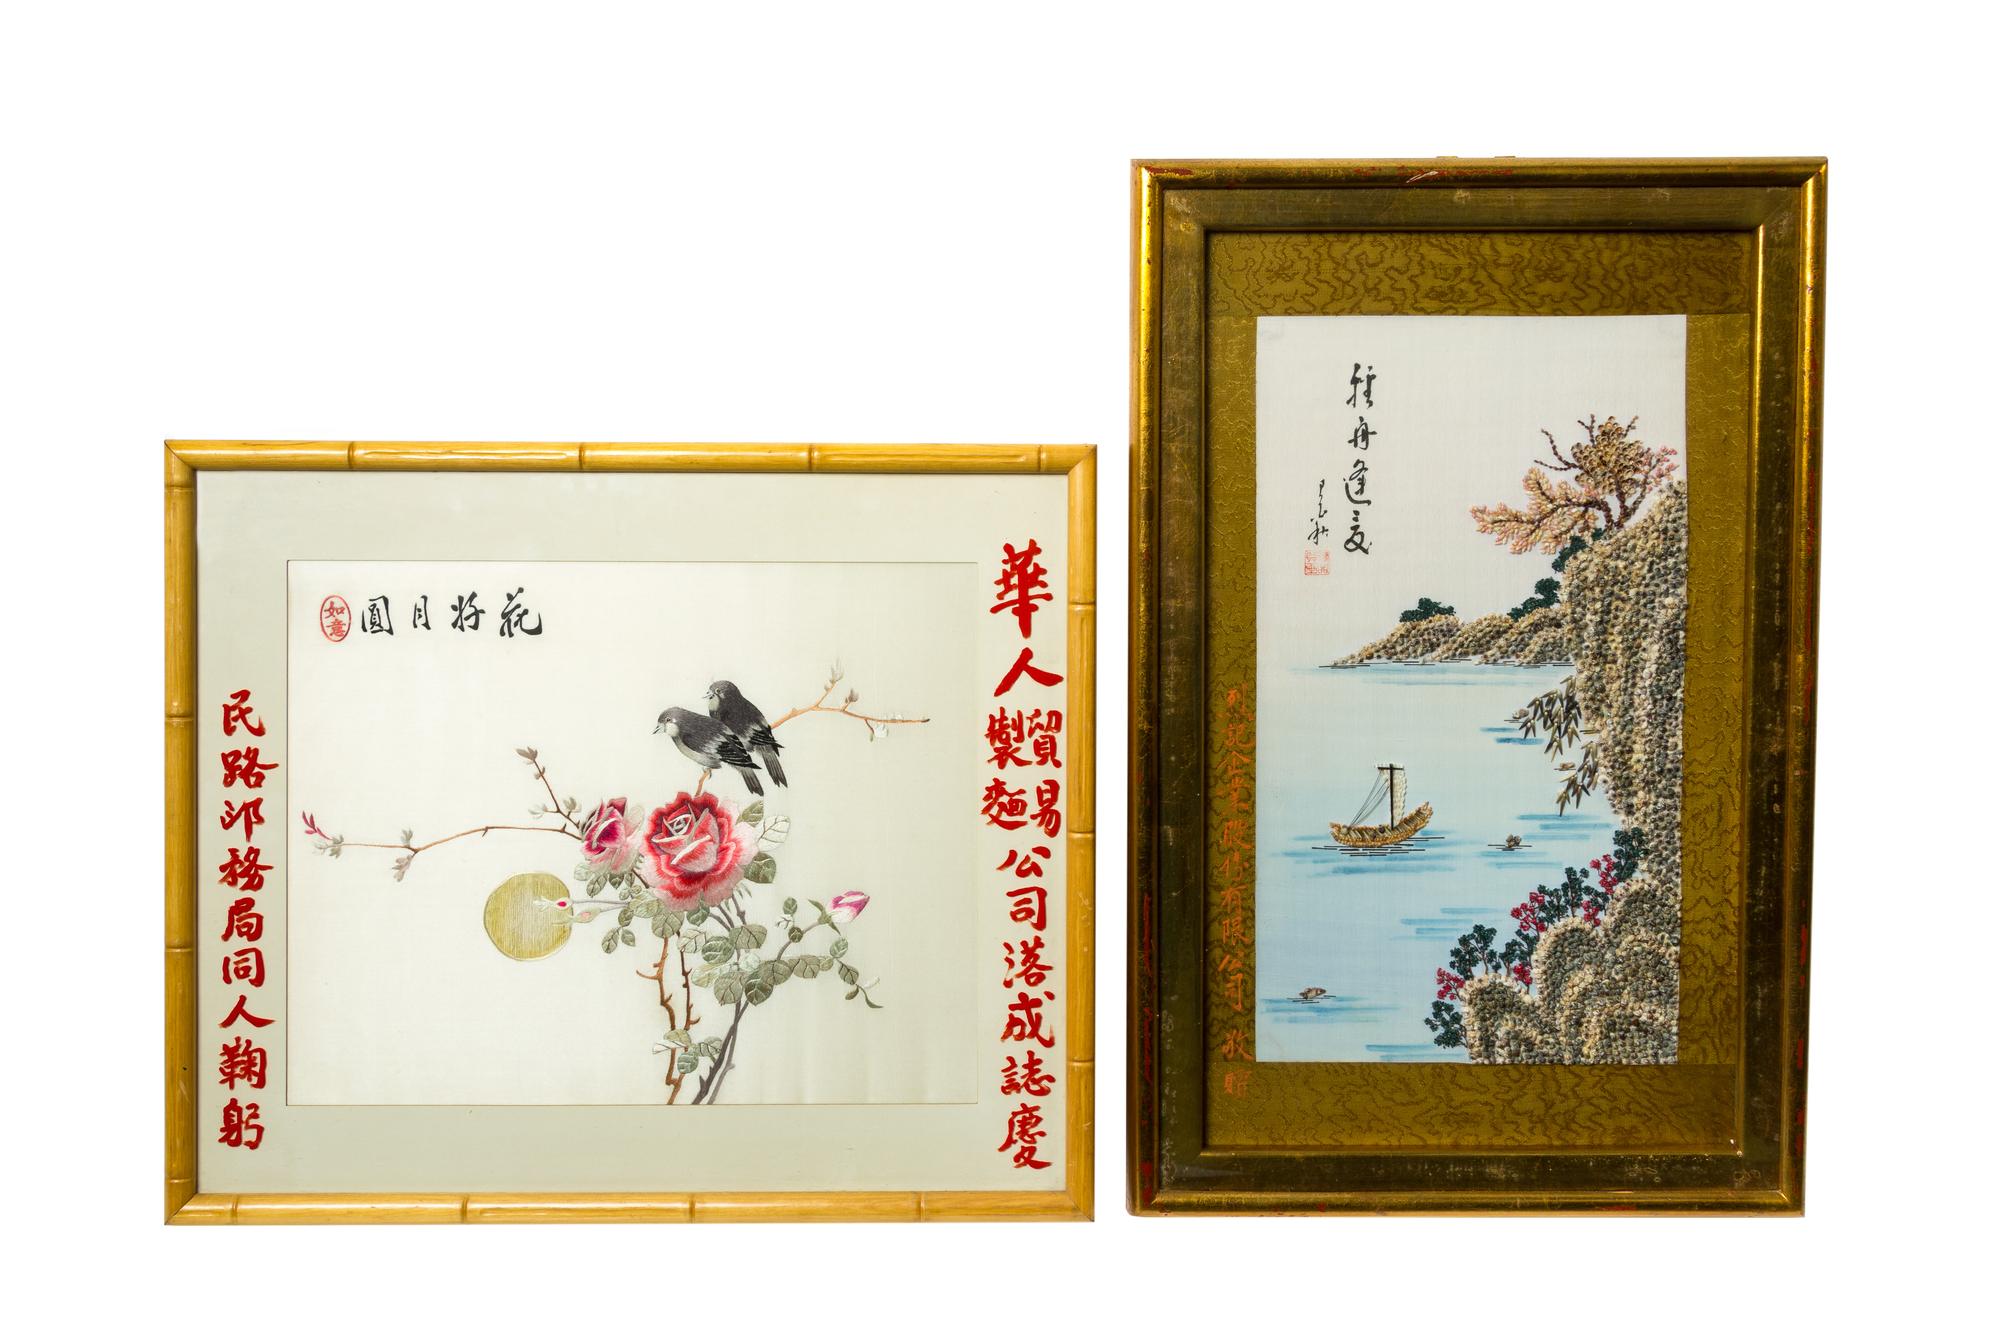 花好月圓
如意
華人貿易製麵公司落成誌慶
民路邜務局同人鞠躬
舟逢
列記企業股份有限公司 敬贈